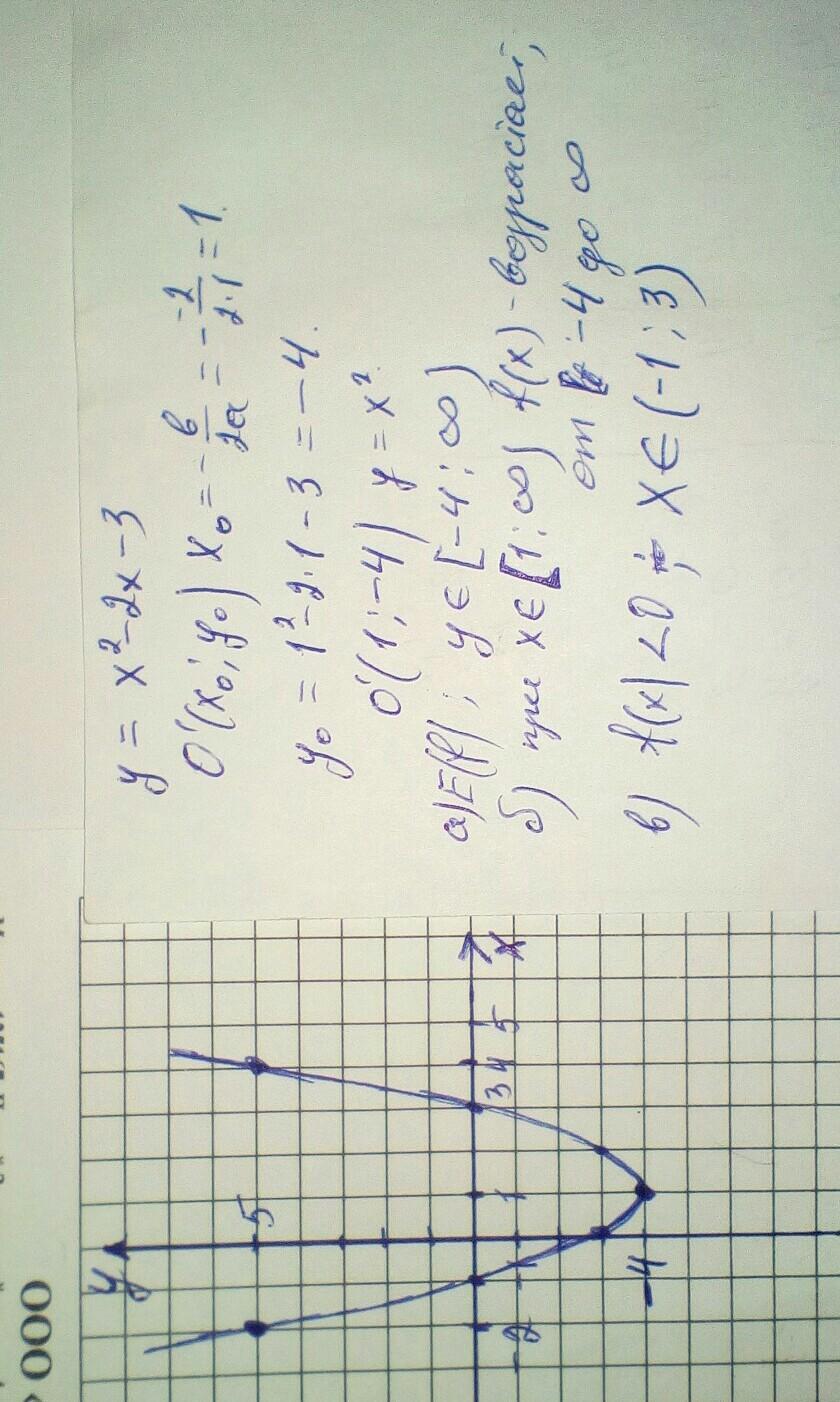 y = x² - 2x - 3
O'(x₀; y₀) x₀ = -b/2a = - -2/2·1 = 1.
y₀ = 1² - 2·1 - 3 = -4.
O'(1; -4) y = x².
а) E(f); y ∈ [-4; ∞)
б) при x ∈ [1; ∞) f(x) - возрастает,
от -4 до ∞
в) f(x) < 0; x ∈ (-1; 3)
y
5
-2 -1 1 3 4 5 x
-4
000